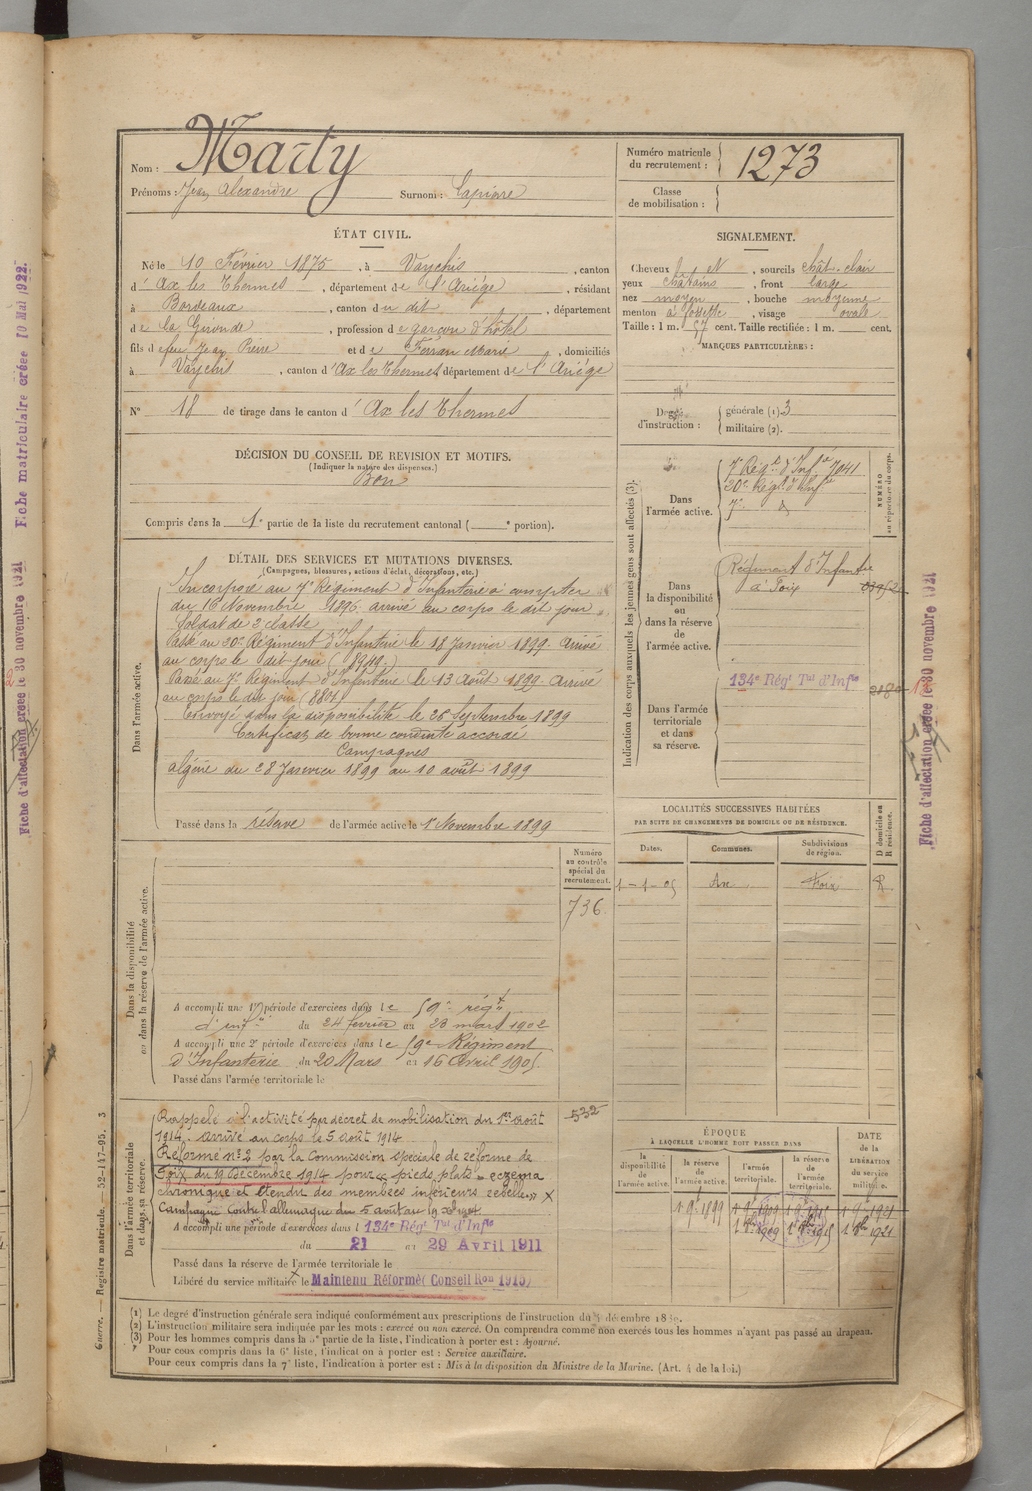 Nom : Marty
Prénoms : Jean Alexandre Surnom : Lapierre
Numéro matricule du recrutement : 1273
Classe de mobilisation :
ÉTAT CIVIL.
Né le 10 Février 1875, à Vaychis, canton
d'Ax les Thermes, département de l'Ariége, résidant
à Bordeaux, canton du dit, département
de la Gironde, profession de garçon d'hôtel
fils de feu Jean Pierre et de Ferran Marie, domiciliés
à Vaychis, canton d'Ax les Thermes département de l'Ariége
N° 18 de tirage dans le canton d'Ax les Thermes
SIGNALEMENT.
Cheveux, sourcils chât. clair
yeux chatains, front large
nez moyen, bouche moyenne
menton à fossette, visage ovale
Taille : 1 m. 57 cent. Taille rectifiée : 1 m. cent.
MARQUES PARTICULIÈRES :
Degré d'instruction : générale (1). 3
militaire (2).
DÉCISION DU CONSEIL DE REVISION ET MOTIFS.
(Indiquer la nature des dispenses.)
Bon
Compris dans la 1e partie de la liste du recrutement cantonal ( e portion).
DÉTAIL DES SERVICES ET MUTATIONS DIVERSES.
(Campagnes, blessures, actions d'éclat, décorations, etc.)
Dans l'armée active.
Incorporé au 7e Régiment d'Infanterie à compter
du 16 Novembre 1896 arrivé au corps le dit jour
soldat de 2e classe
Passé au 20e Régiment d'Infanterie le 18 Janvier 1899. Arrivé
au corps le dit jour (8949.)
Passé au 7e Régiment d'Infanterie le 13 Août 1899. Arrivé
au corps le dit jour (8801)
Envoyé dans la disponibilité le 25 Septembre 1899
Certificat de bonne conduite accordé
Campagnes
Algérie du 28 Janvier 1899 au 10 août 1899
Passé dans la réserve de l'armée active le 1er Novembre 1899
Indication des corps auxquels les jeunes gens sont affectés (3).
NUMÉRO au répertoire du corps.
Dans l'armée active.
7e Régt d'Infie 7041
20e Régt d'Infie
7e
Dans la disponibilité ou dans la réserve de l'armée active.
Régiment d'Infantie
à Foix
Dans l'armée territoriale et dans sa réserve.
134e Régt Tal d'Infie
LOCALITÉS SUCCESSIVES HABITÉES
PAR SUITE DE CHANGEMENTS DE DOMICILE OU DE RÉSIDENCE.
Dates. Communes. Subdivisions de région. D domicile ou R résidence.
1-1-05 Ax Foix R
Dans la disponibilité ou dans la réserve de l'armée active.
Numéro au contrôle spécial du recrutement.
736
A accompli une 1re période d'exercices dans le 59e régt
d'infie du 24 février au 23 mars 1902
A accompli une 2e période d'exercices dans le 59e Régiment
d'Infanterie du 20 Mars au 16 Avril 1905.
Passé dans l'armée territoriale le
Dans l'armée territoriale et dans sa réserve.
532
Rappelé à l'activité par décret de mobilisation du 1er août
1914. arrivé au corps le 5 août 1914
Réformé n°2 par la Commission spéciale de réforme de
Foix du 19 décembre 1914 pour « pieds plats - eczema
chronique et étendu des membres inférieurs rebelle »
Campagne contre l'allemagne du 5 août au 19 Xbre 1914
A accompli une période d'exercices dans l 134e Régt Tal d'Infie
du 21 au 29 Avril 1911
Passé dans la réserve de l'armée territoriale le
Libéré du service militaire le Maintenu Réformé (Conseil Ron 1915)
ÉPOQUE
À LAQUELLE L'HOMME DOIT PASSER DANS
DATE DE LA LIBÉRATION du service militaire.
la disponibilité de l'armée active. la réserve de l'armée active. l'armée territoriale. la réserve de l'armée territoriale.
1 9bre 1899 1 9bre 1909 1 9bre 1915 1 9bre 1921
(1) Le degré d'instruction générale sera indiqué conformément aux prescriptions de l'instruction du décembre
(2) L'instruction militaire sera indiquée par les mots : exercé ou non exercé. On comprendra comme non exercés tous les hommes n'ayant pas passé au drapeau.
(3) Pour les hommes compris dans la partie de la liste, l'indication à porter est : Ajourné.
Pour ceux compris dans la 6e liste, l'indication à porter est : Service auxiliaire.
Pour ceux compris dans la 7e liste, l'indication à porter est : Mis à la disposition du Ministre de la Marine. (Art. 4 de la loi.)
Guerre. — Registre matricule. — 52-147-95. 3
Fiche matriculaire créée 10 Mai 1922.
Fiche d'affectation créée le 30 novembre 1921
Fiche d'affectation créée le 30 novembre 1921